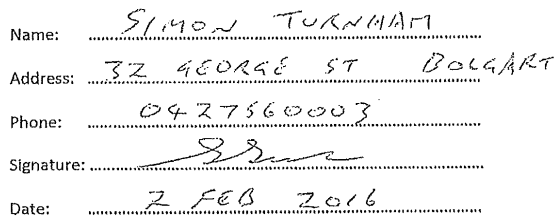 Name: SIMON TURNHAM
Address: 32 GEORGE ST BOLGART
Phone: 0427560003
Signature:
Date: 2 FEB 2016